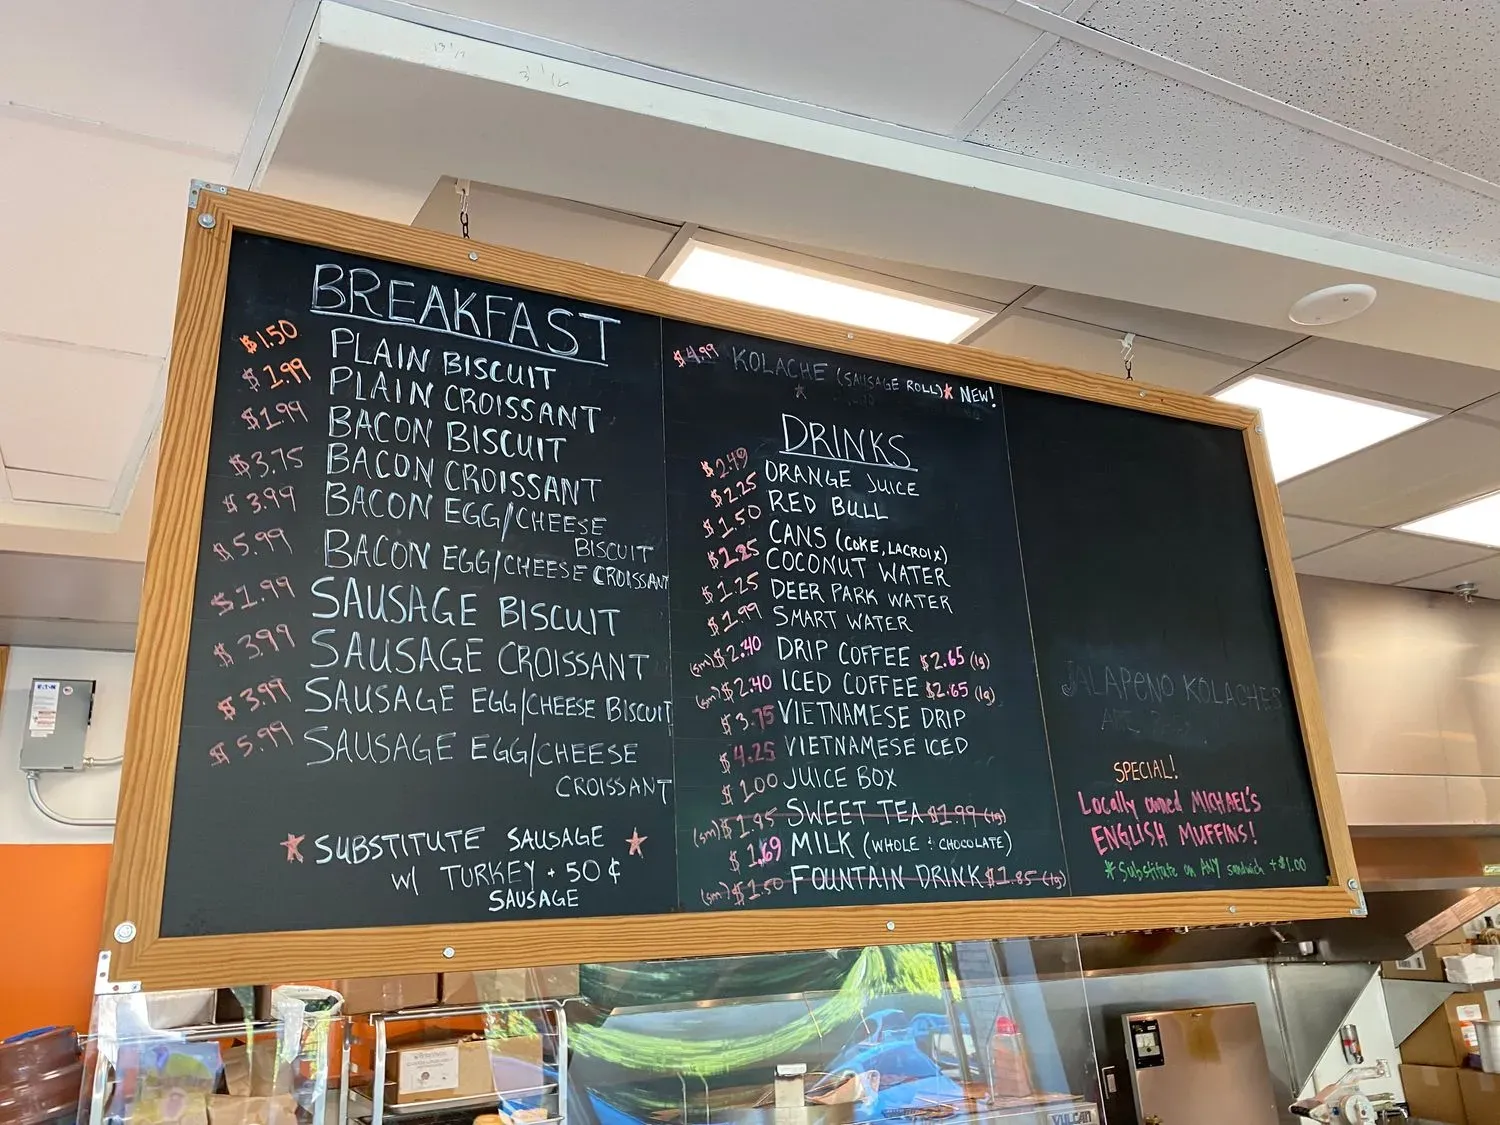 BREAKFAST
$1.50 PLAIN BISCUIT
$1.99 PLAIN CROISSANT
$1.99 BACON BISCUIT
$3.75 BACON CROISSANT
$3.99 BACON EGG/CHEESE
BISCUIT
$5.99 BACON EGG/CHEESE CROISSANT
$1.99 SAUSAGE BISCUIT
$3.99 SAUSAGE CROISSANT
$3.99 SAUSAGE EGG/CHEESE BISCUIT
$5.99 SAUSAGE EGG/CHEESE
CROISSANT
★ SUBSTITUTE SAUSAGE ★
W/ TURKEY + 50¢
SAUSAGE
$4.99 KOLACHE (SAUSAGE ROLL)★ NEW!
DRINKS
$2.49 ORANGE JUICE
$2.25 RED BULL
$1.50 CANS (COKE, LACROIX)
COCONUT WATER
$1.25 DEER PARK WATER
$1.99 SMART WATER
(sm) $2.40 DRIP COFFEE $2.65 (lg)
(sm) $2.40 ICED COFFEE $2.65 (lg)
$3.75 VIETNAMESE DRIP
$4.25 VIETNAMESE ICED
$1.00 JUICE BOX
(sm) $1.85 SWEET TEA $1.99 (lg)
$1.69 MILK (WHOLE + CHOCOLATE)
(sm) $1.50 FOUNTAIN DRINK $1.85 (lg)
JALAPENO KOLACHES
ARE
SPECIAL!
Locally owned MICHAEL'S
ENGLISH MUFFINS!
* Substitute on ANY sandwich +$1.00
EATON
VULCAN